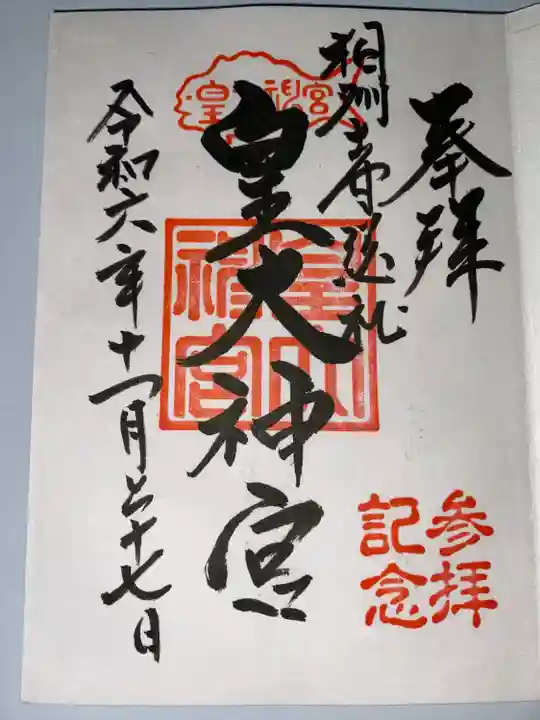 奉拝
相州寿巡礼
皇大神宮
令和六年十一月二十七日
皇大神宮
参拝
記念